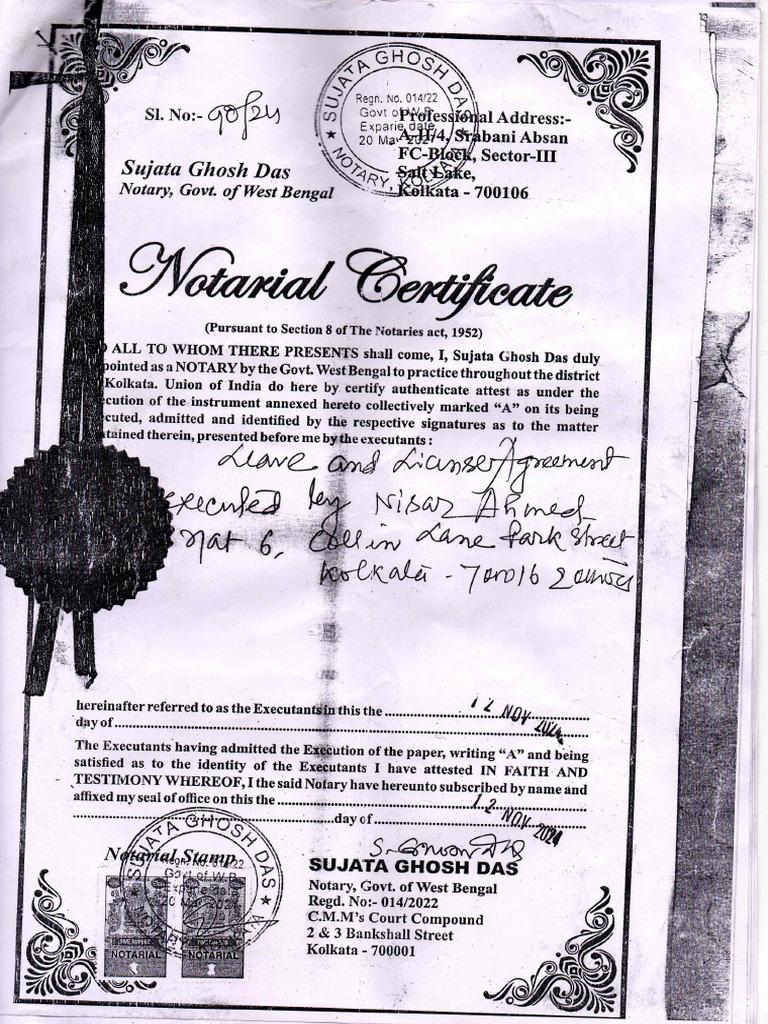 SUJATA GHOSH DAS
Regn. No. 014/22
Govt of W.B.
Exparie date
20 Mar 2027
NOTARY, KOLKATA
Sl. No:- 90/24
Professional Address:-
A-11/4, Srabani Absan
FC-Block, Sector-III
Salt Lake,
Kolkata - 700106
Sujata Ghosh Das
Notary, Govt. of West Bengal
Notarial Certificate
(Pursuant to Section 8 of The Notaries act, 1952)
O ALL TO WHOM THERE PRESENTS shall come, I, Sujata Ghosh Das duly
pointed as a NOTARY by the Govt. West Bengal to practice throughout the district
Kolkata. Union of India do here by certify authenticate attest as under the
cution of the instrument annexed hereto collectively marked “A” on its being
cuted, admitted and identified by the respective signatures as to the matter
tained therein, presented before me by the executants :
Leave and License Agreement
executed by Nisar Ahmed
6, Collin Lane Park Street
Kolkata - 700016
hereinafter referred to as the Executants in this the 12 NOV 2024
day of
The Executants having admitted the Execution of the paper, writing “A” and being
satisfied as to the identity of the Executants I have attested IN FAITH AND
TESTIMONY WHEREOF, I the said Notary have hereunto subscribed by name and
affixed my seal of office on this the 12 NOV 2024
day of
Notarial Stamp
SUJATA GHOSH DAS
Regn. No. 014/22
Govt of W.B.
NOTARY, KOLKATA
NOTARIAL
NOTARIAL
SUJATA GHOSH DAS
Notary, Govt. of West Bengal
Regd. No:- 014/2022
C.M.M's Court Compound
2 & 3 Bankshall Street
Kolkata - 700001